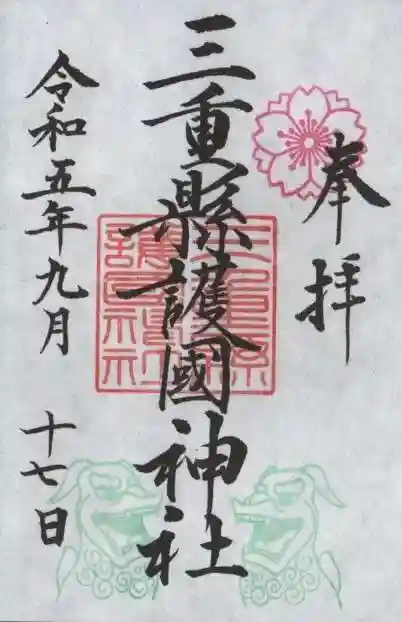 奉拝
三重縣護國神社
令和五年九月十七日